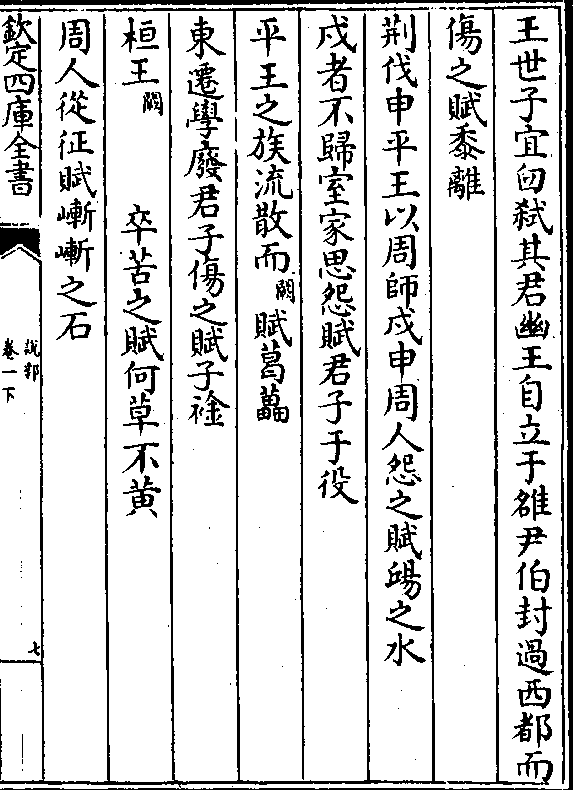 王世子宜臼弑其君幽王自立于雒尹伯封過西都而
傷之賦黍離
荆伐申平王以周師戍申周人怨之賦𨻰之水
戍者不歸室家思怨賦君子于役
平王之族流散而闕賦葛藟
東遷學廢君子傷之賦子䘳
桓王闕 卒苦之賦何草不黄
周人從征賦嶃嶃之石
欽定四庫全書
説郛
卷一下
七